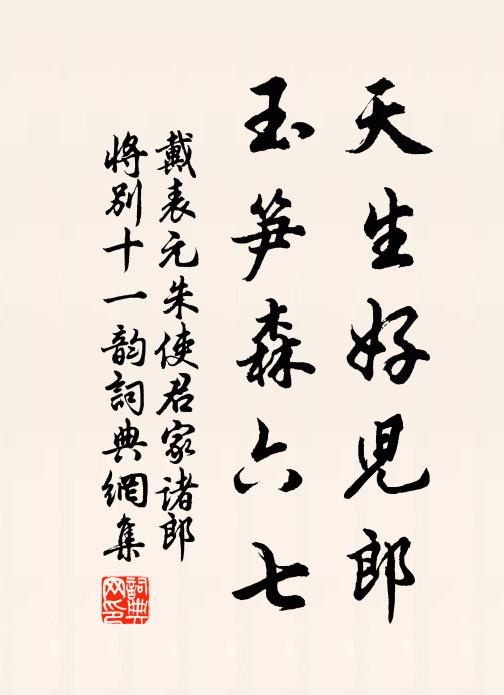 天生好児郎
玉笋森六七
戴表元朱使君家諸郎
將别十一韵詞典網集
詞典網印